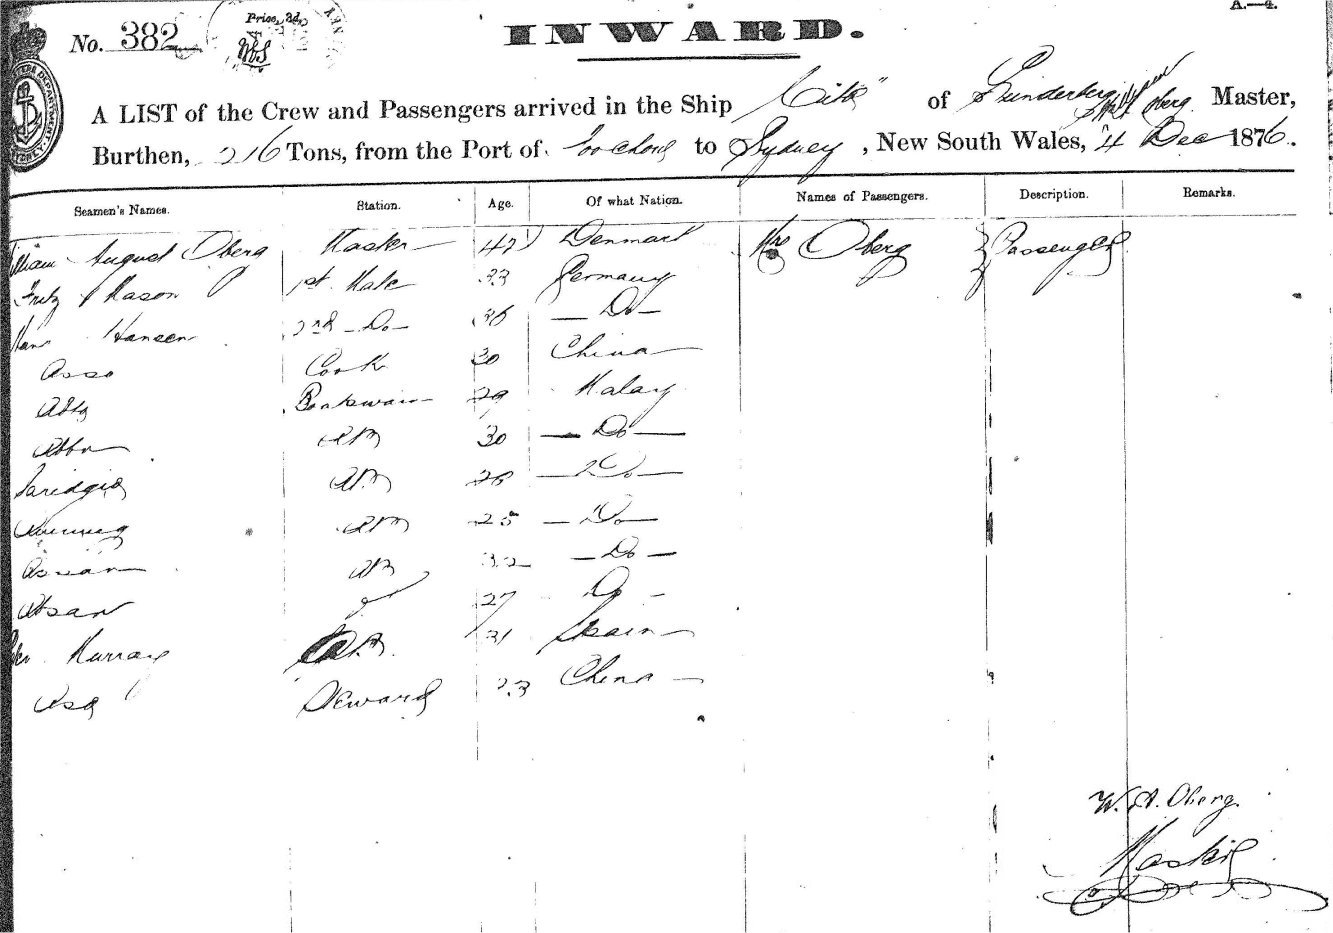 A.—4.
No. 382
Price, 3d.
INWARD.
A LIST of the Crew and Passengers arrived in the Ship "Cito" of Oberg Master,
Burthen, 216 Tons, from the Port of Foochong to Sydney, New South Wales, 4 Dec 1876.
Seamen's Names. Station. Age. Of what Nation. Names of Passengers. Description. Remarks.
William August Oberg Master 42 Denmark Mrs Oberg Passenger
Fritz Mason 1st Mate 33 Germany
Hans Hansen 2nd - Do - 36 — Do —
Asso Cook 30 China
Boatswain 29 Malay
AB 30 — Do —
AB 28 — Do —
AB 25 — Do —
Assan AB 32 — Do —
Absan 27 Do -
Murray AB. 31 Spain
Asa Steward 23 China —
W. A. Oberg.
Master